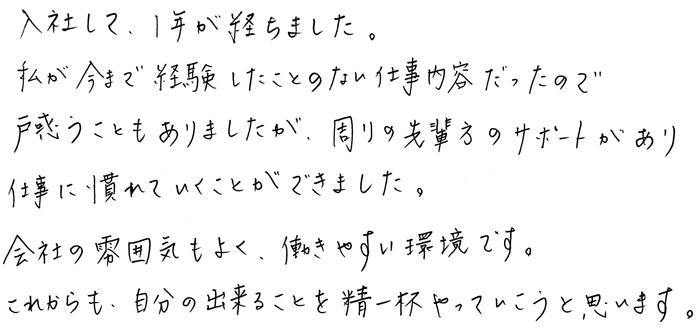 入社して、1年が経ちました。
私が今まで経験したことのない仕事内容だったので
戸惑うこともありましたが、周りの先輩方のサポートがあり
仕事に慣れていくことができました。
会社の雰囲気もよく、働きやすい環境です。
これからも、自分の出来ることを精一杯やっていこうと思います。